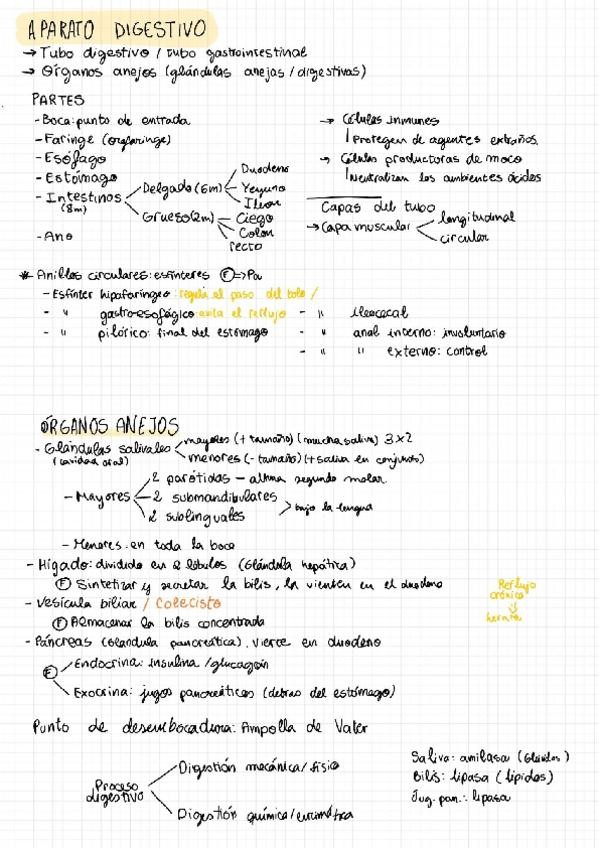 APARATO DIGESTIVO
→ Tubo digestivo / tubo gastrointestinal
→ Órganos anejos (glándulas anejas / digestivas)
PARTES
- Boca: punto de entrada
- Faringe (orofaringe)
- Esófago
- Estómago
- Intestinos (8m)
Delgado (6m)
Duodeno
Yeyuno
Ileon
Grueso (2m)
Ciego
Colon
recto
- Ano
→ Células inmunes
Protegen de agentes extraños
→ Células productoras de moco
Neutralizan los ambientes ácidos
Capas del tubo
→ Capa muscular
longitudinal
circular
* Anillos circulares: esfínteres Ⓕ→
- Esfínter hipofaríngeo: regula el paso del bolo /
- " gastroesofágico: evita el reflujo
- " pilórico: final del estómago
- " ileocecal
- " anal interno: involuntario
- " " externo: control
ÓRGANOS ANEJOS
- Glándulas salivales (cavidad oral)
mayores (+ tamaño) (mucha saliva) 3x2
menores (- tamaño) (+ saliva en conjunto)
- Mayores
2 parótidas - altura segundo molar
2 submandibulares
2 sublinguales
bajo la lengua
- Menores: en toda la boca
- Hígado: dividido en 2 lóbulos (Glándula hepática)
Ⓕ Sintetizar y secretar la bilis, la vierten en el duodeno
Reflujo crónico
⇓
hernia
- Vesícula biliar / Colecisto
Ⓕ Almacenar la bilis concentrada
- Páncreas (Glandula pancreática). Vierte en duodeno
Ⓕ
Endocrina: insulina / glucagón
Exocrina: jugos pancreáticos (detras del estómago)
Punto de desembocadura: Ampolla de Vater
Proceso digestivo
Digestión mecánica / física
Digestión química / enzimática
Saliva: amilasa
Bilis: lipasa (lípidos)
Jug. pan.: lipasa